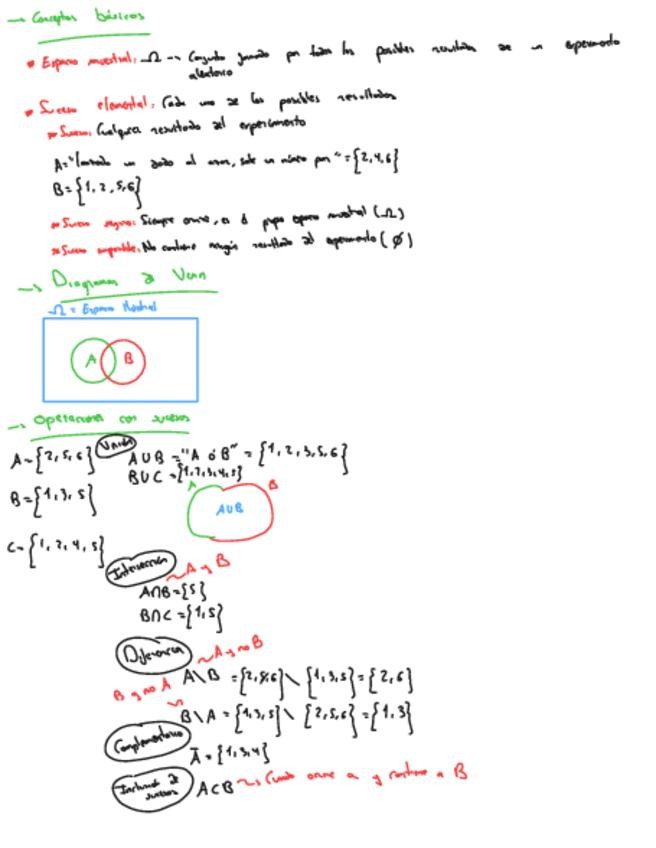 → Conceptos básicos
* Espacio muestral: Ω → Conjunto formado por todos los posibles resultados de un experimento
aleatorio
* Suceso elemental: Cada uno de los posibles resultados
* Suceso: Cualquier resultado del experimento
A = "lanzado un dado al azar, sale un número par" = {2,4,6}
B = {1, 2, 5, 6}
* Suceso seguro: Siempre ocurre, es el propio espacio muestral (Ω)
* Suceso imposible: No contiene ningún resultado del experimento (Ø)
→ Diagramas de Venn
Ω = Espacio Muestral
A B
→ Operaciones con sucesos
A = {2, 5, 6} Unión A∪B = "A ó B" = {1, 2, 3, 5, 6}
B∪C = {1,2,3,4,5}
B = {1, 3, 5}
A B
A∪B
C = {1, 2, 4, 5}
Intersección
A y B
A∩B = {5}
B∩C = {1,5}
Diferencia A y no B
A\B = {2,5,6} \ {1,3,5} = {2,6}
B y no A
B\A = {1,3,5} \ {2,5,6} = {1,3}
Complementario
Ā = {1,3,4}
Inclusión de sucesos A⊂B → Cuando ocurre a y contiene a B